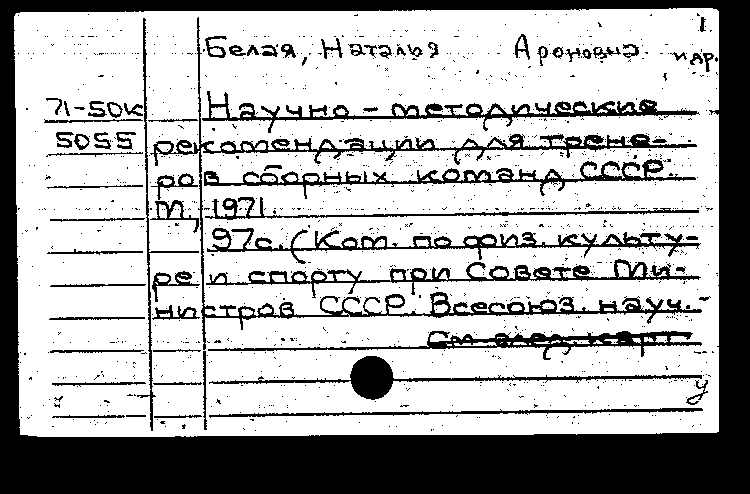 1
Белая, Наталья Ароновна и др.
71-50К Научно-методические
5055 рекомендации для трене-
ров сборных команд СССР.
М., 1971.
97с. (Ком. по физ. культу-
ре и спорту при Совете Ми-
нистров СССР. Всесоюз. науч.-
См. след. карт.
у